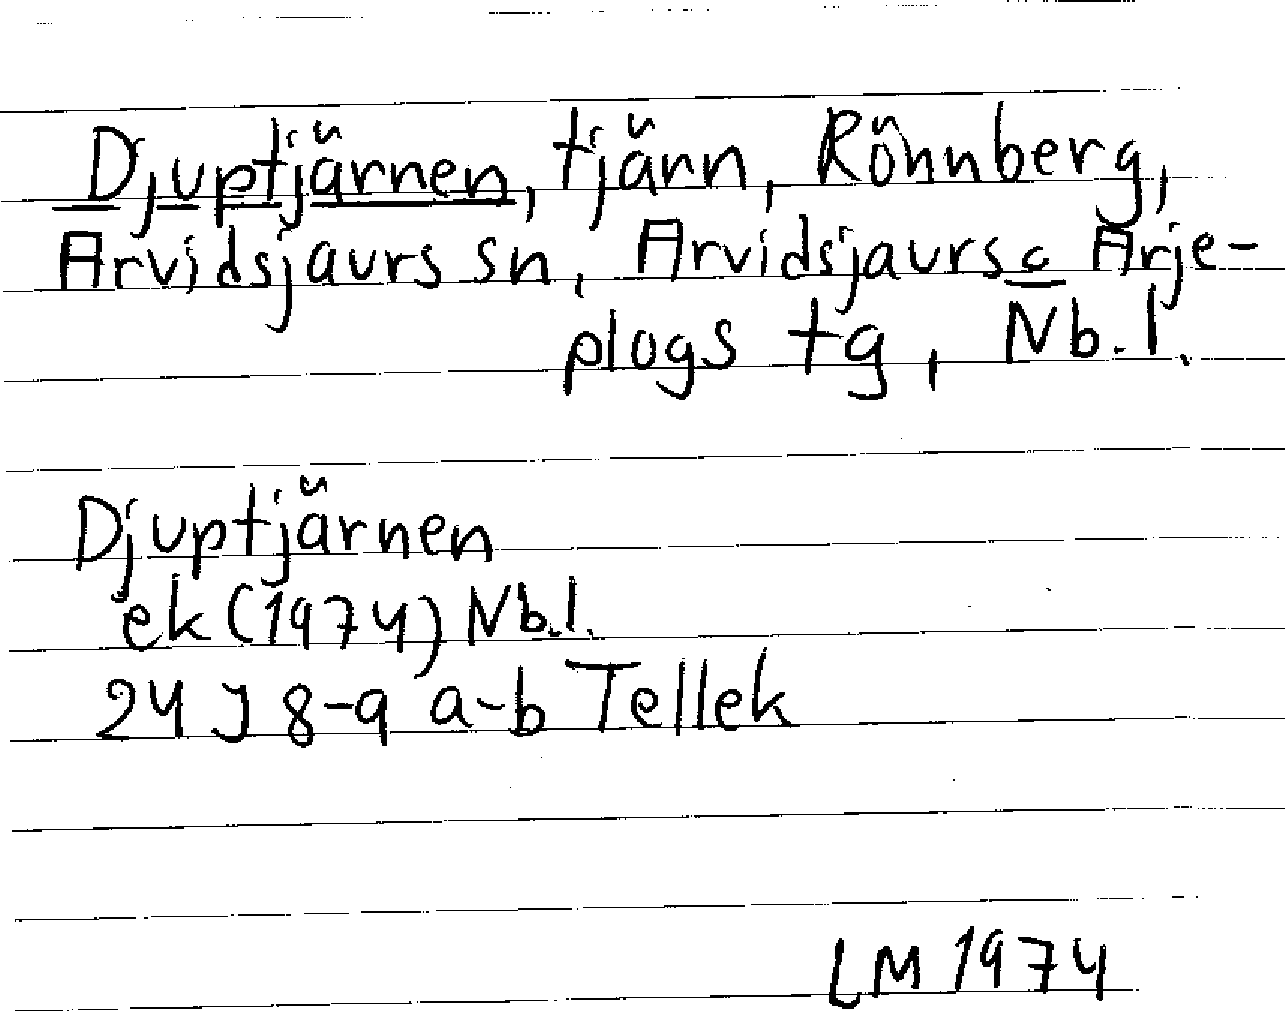 Djuptjärnen, tjärn, Rönnberg,
Arvidsjaurs sn, Arvidsjaurs o Arje-
plogs tg, Nb.l.
Djuptjärnen
ek (1974) Nb.l.
24 J 8-9 a-b Tellek
LM 1974